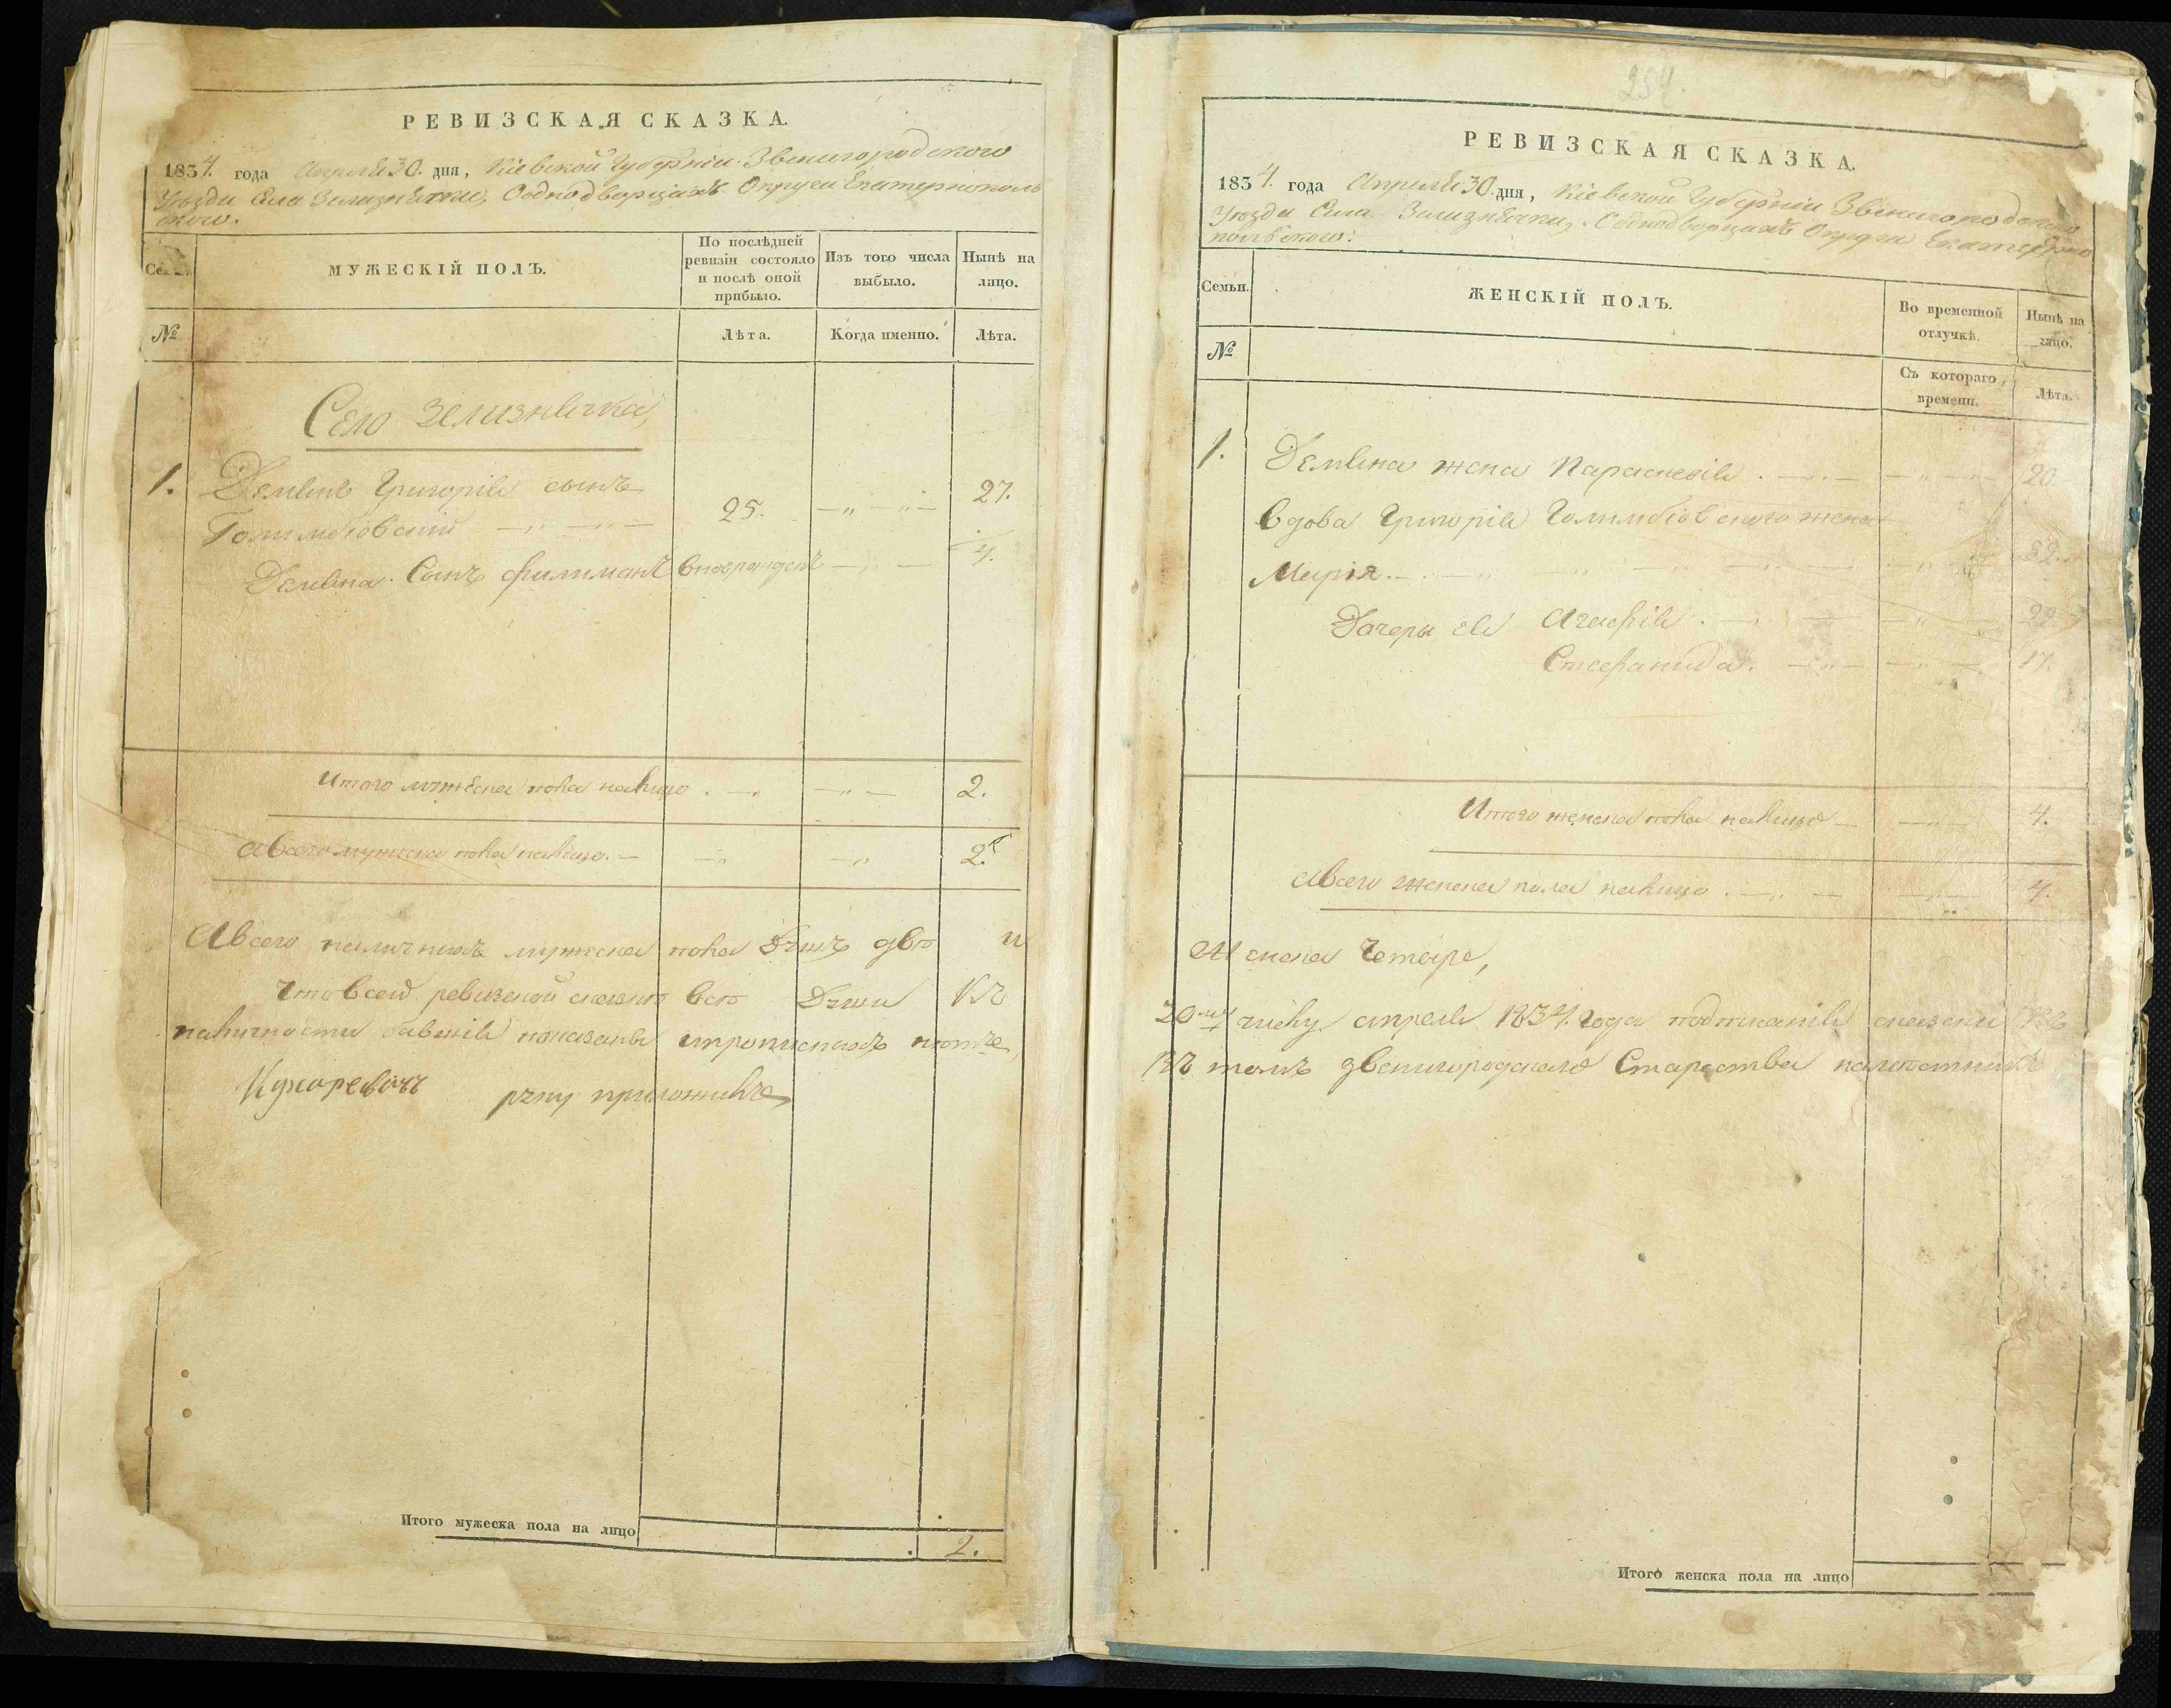 РЕВИЗСКАЯ СКАЗКА.
1834. года Апреля 30. дня, Кіевской Губерніи Звенигородского
Уезда Села Зелизнячки, Ооднодворцахъ Округи Екатеринополь
ского.
МУЖЕСКІЙ ПОЛЪ.
По послѣдней
ревизіи состояло
и послѣ оной
прибыло.
Изъ того числа
выбыло.
Нынѣ на
лицо.
№
Лѣта.
Когда именно.
Лѣта.
Село Зелизнячка,
1. Демянъ Григоріевъ сынъ
Голимбіовскій 25. 27.
Демяна Сынъ Филимонъ вновьрожденъ 4.
Итого мужеска пола налицо. 2.
Авсего мужеска пола налицо. 2.
Авсего наличныхъ мужеска пола душъ двѣ и
Что в сей ревизской сказке всѣ Души Къ
наличности бывшія показаны
руку приложилъ,
Итого мужеска пола на лицо
2.
254.
РЕВИЗСКАЯ СКАЗКА.
1834. года Апреля 30. дня, Кіевской Губерніи Звенигородского
Уезда Села Зелизнячки, Ооднодворцахъ Округи Екатерино
польского.
Семьи.
ЖЕНСКІЙ ПОЛЪ.
Во временной
отлучкѣ.
Нынѣ на
лицо.
№
Съ котораго
времени.
Лѣта.
1. Демяна жена Параскевія 20.
Вдова Григорія Голимбіовского жена
Марія
Дочеры ея Агафія 22.
Стефанида. 17.
Итого женска пола налицо 4.
Авсего женска пола налицо 4.
Женска Четыре,
числу апреля 1834. года сказки
Въ томъ звенигородского Староства
Итого женска пола на лицо